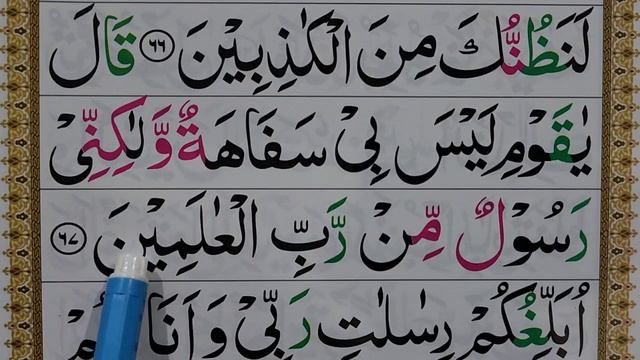 لَنَظُنُّكَ مِنَ الْكٰذِبِيْنَ ﴿٦٦﴾ قَالَ
يٰقَوْمِ لَيْسَ بِيْ سَفَاهَةٌ وَّلٰكِنِّيْ
رَسُوْلٌ مِّنْ رَّبِّ الْعٰلَمِيْنَ ﴿٦٧﴾
اُبَلِّغُكُمْ رِسٰلٰتِ رَبِّيْ وَاَنَا